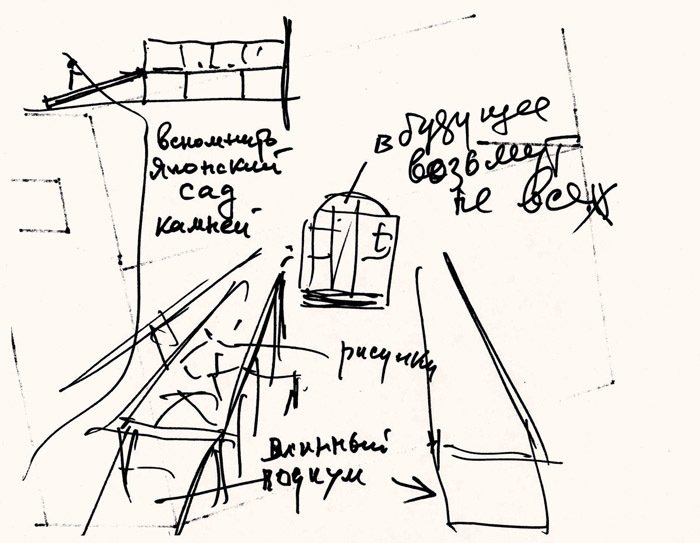 вспомнить
Японский
сад
камней
в будущее
возьмут
не всех
t
рисунки
длинный
подиум